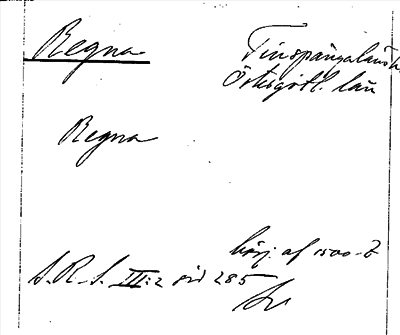 Regna
Finspångaläns h.
Östergötl. län
Regna
börj. af 1500-t
S.R.S. III:2 sid 285